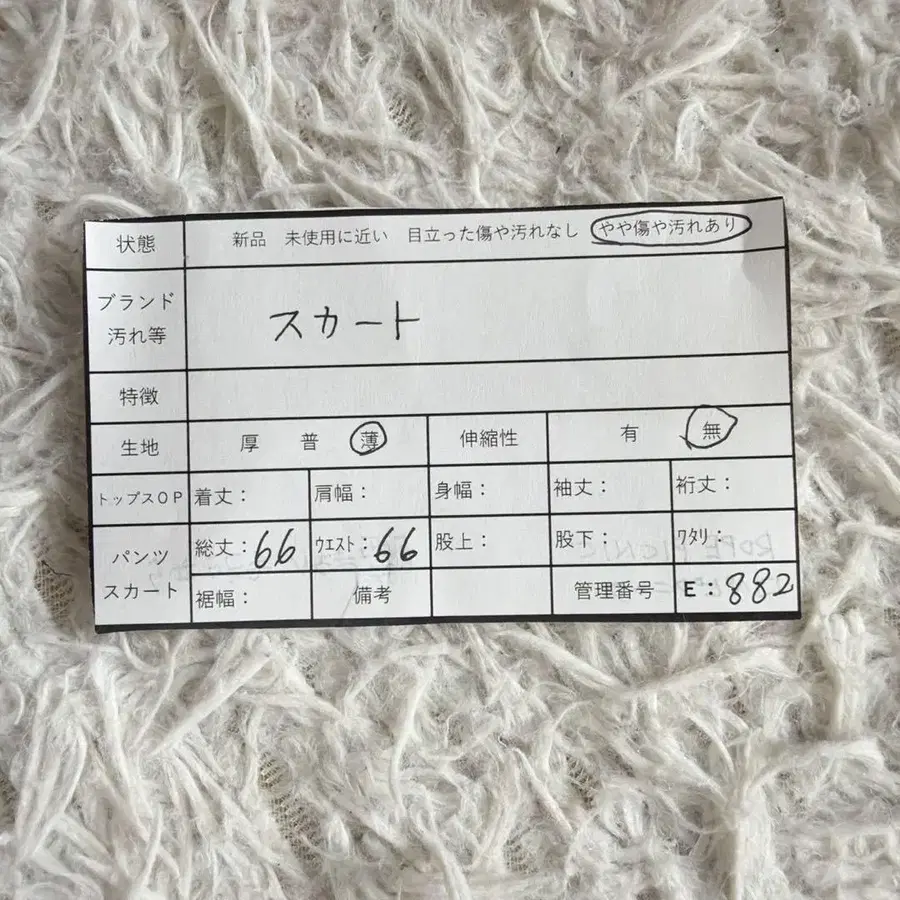 状態 新品 未使用に近い 目立った傷や汚れなし やや傷や汚れあり
ブランド
汚れ等 スカート
特徴
生地 厚 普 薄 伸縮性 有 無
トップスOP 着丈: 肩幅: 身幅: 袖丈: 裄丈:
パンツ
スカート 総丈:66 ウエスト:66 股上: 股下: ワタリ:
裾幅: 備考 管理番号 E:882